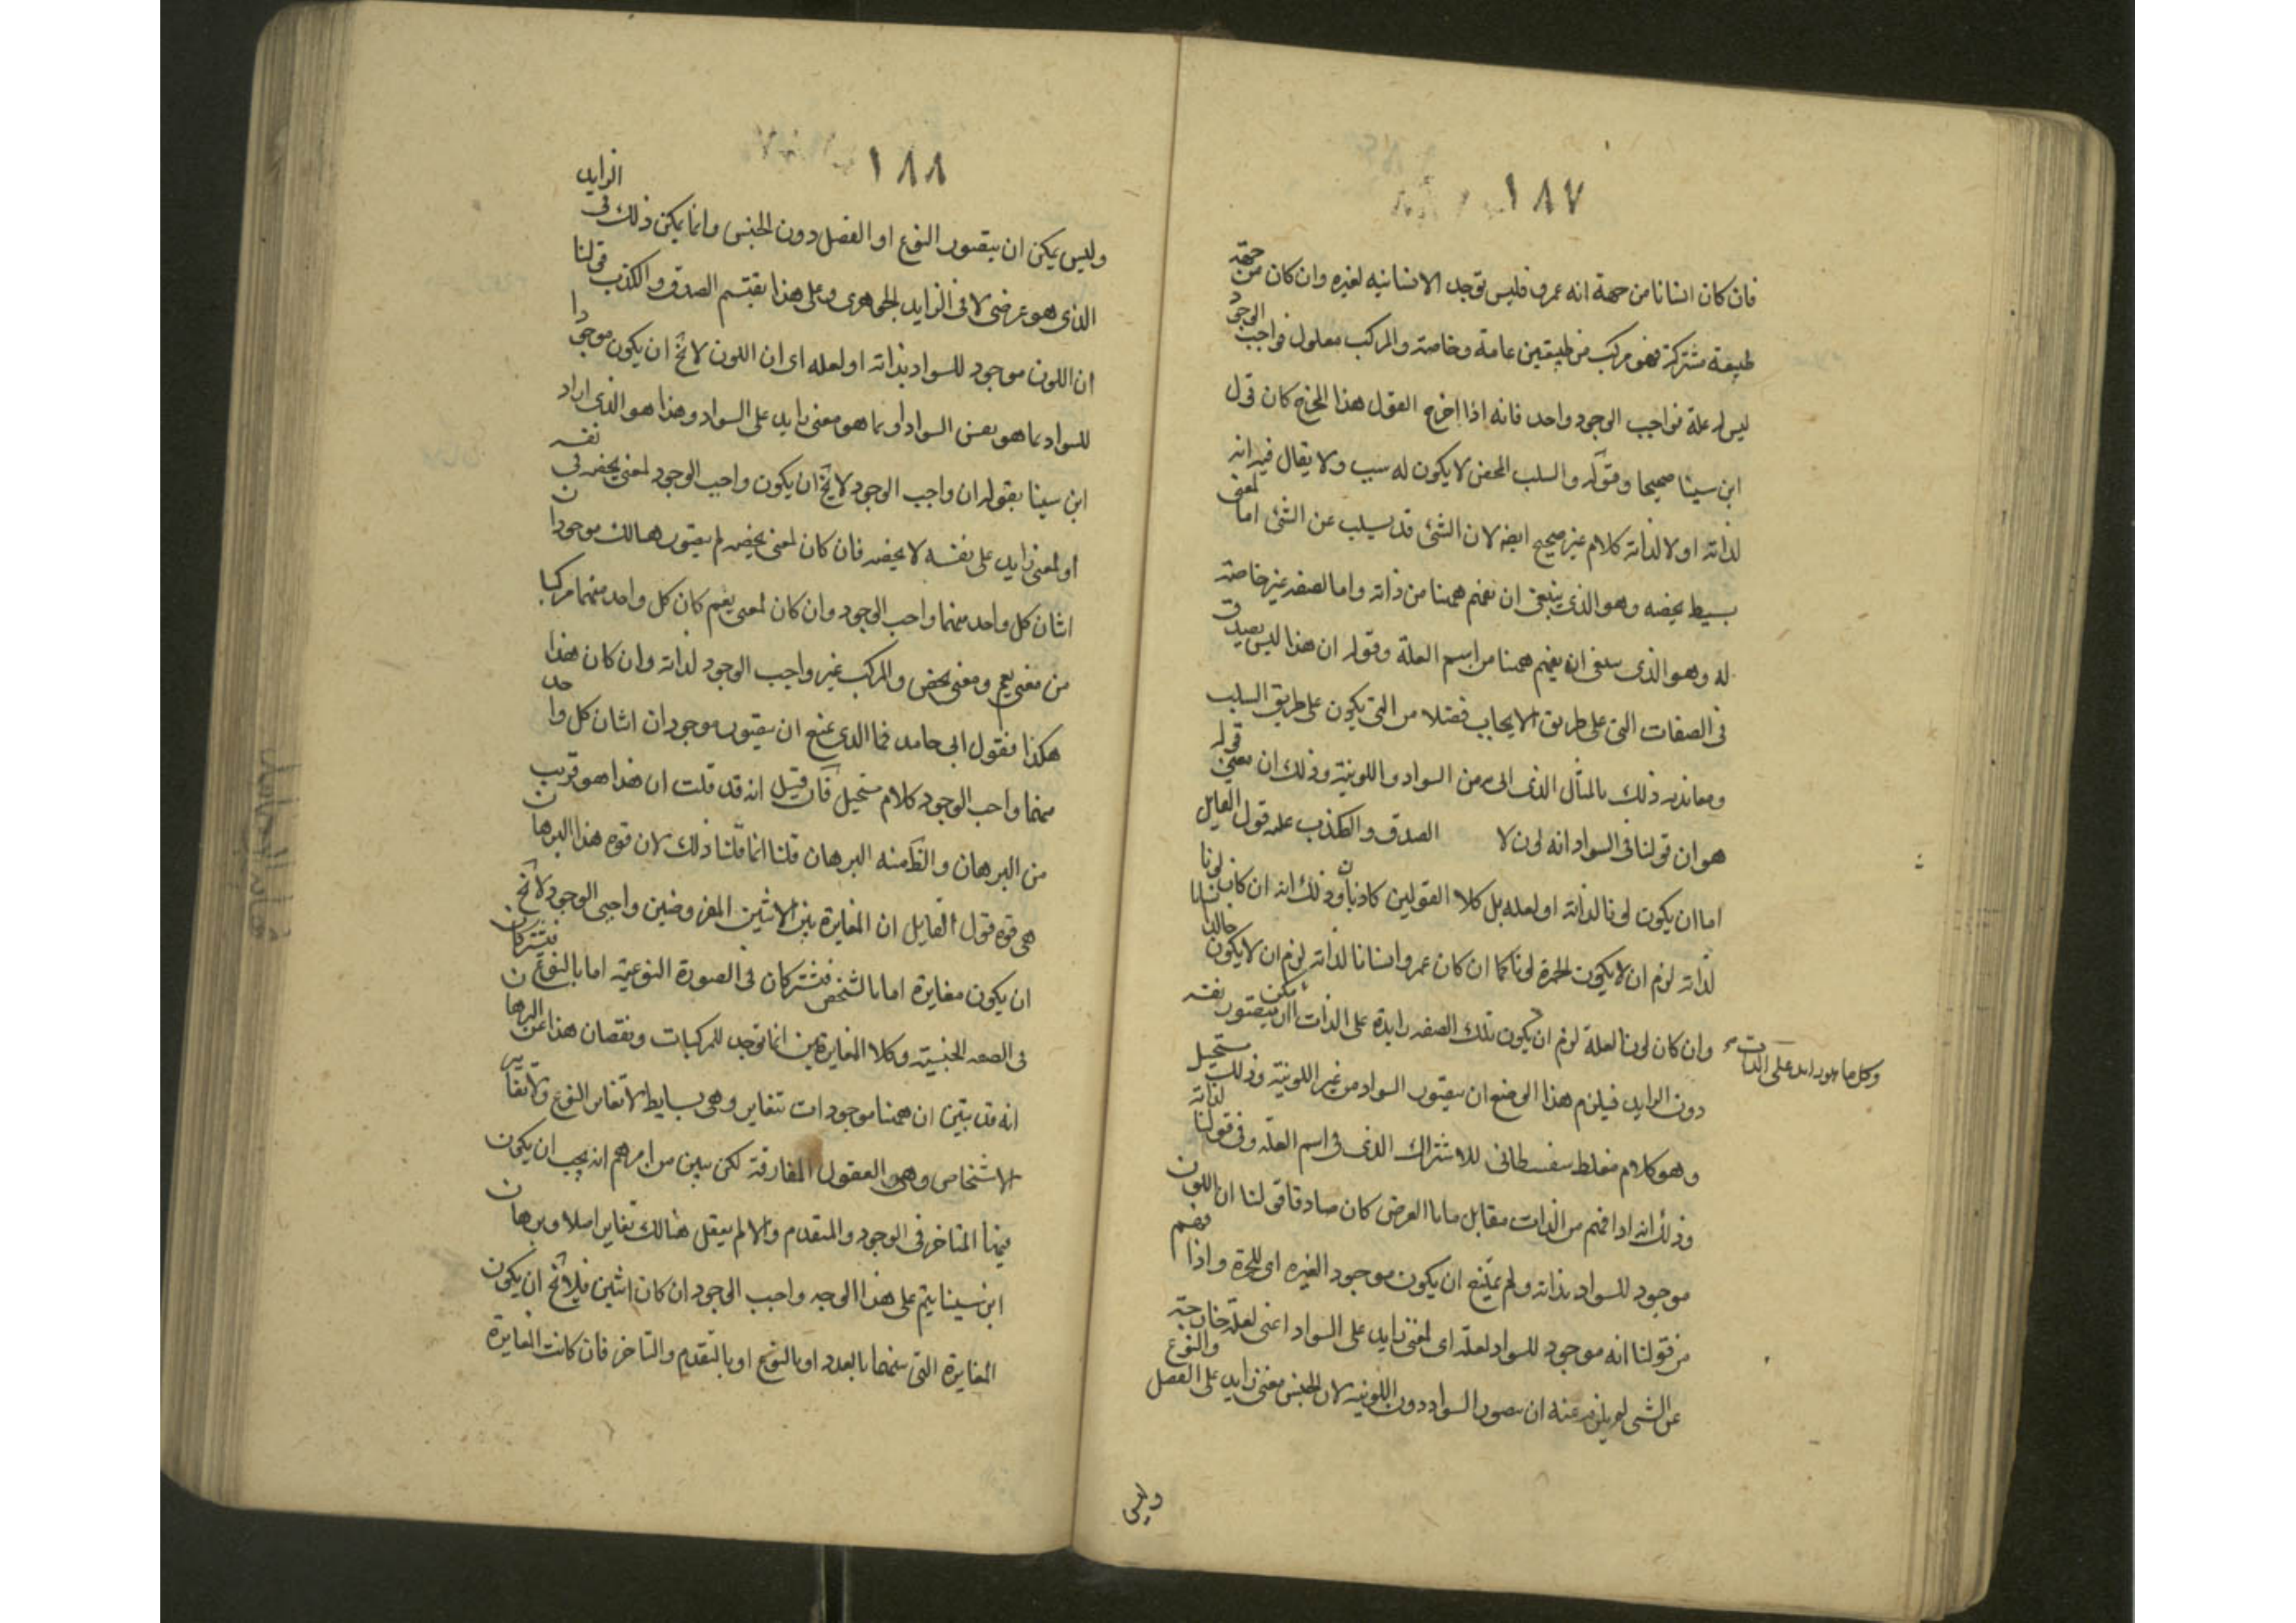 ١٨٧
فان كان انسانا من جهة انه عمرو فليس توجد الانسانيه لغيره وان كان من جهة
طبيعة مشتركة فهو مركب من طبيعتين عامة وخاصة والمركب معلول فواجب الوجود
ليس له علة فواجب الوجود واحد فانه اذا اخرج القول هذا المخرج كان قول
ابن سينا صحيحا وقوله والسلب المحض لا يكون له سبب ولا يقال فيه انه
لذاته او لا لذاته كلام غير صحيح ايضه لان الشئ قد يسلب عن الشئ اما لمعنى
بسيط يخصه وهو الذى ينبغى ان نفهم ههنا من ذاته واما لصفه غير خاصة
له وهو الذى ينبغى ان يفهم ههنا من اسم العلة وقوله ان هذا ليس يصدق
فى الصفات التى على طريق الايجاب فضلا من التى يكون على طريق السلب
ومعاندته ذلك بالمثال الذى اتى به من السواد واللونية وذلك ان معنى قوله
هو ان قولنا فى السواد انه لون لا الصدق والكذب عليه قول القايل
اما ان يكون لونا لذاته او لعله بل كلا القولين كاذبان وذلك انه ان كان لونا
لذاته لزم ان لا يكون الحمرة لونا كما ان كان عمرو انسانا لذاته لزم ان لا يكون خالد انسانا
وان كان لونا لعلة لزم ان يكون تلك الصفه زايدة على الذات ان يتصور نفسه يمكن
وكل ما هو زايد على الذات
دون الزايد فيلزم هذا الوضع ان يتصور السواد من غير اللونية وذلك مستحيل
وهو كلام مغلط سفسطانى للاشتراك الذى فى اسم العلة وفى قولنا لذاته
وذلك انه اذا فهم من الذات مقابل ما بالعرض كان صادقا قولنا ان اللون
موجود للسواد بذاته ولم يمتنع ان يكون موجود الغيره اى للحمرة واذا فهم
من قولنا انه موجود للسواد لعلة اى لمعنى زايد على السواد اعنى لعلة خارجة
عن الشى لم يلزم عنه ان يتصور السواد دون اللونيه لان الجنس معنى زايد على الفصل والنوع
وليس
١٨٨
وليس يمكن ان يتصور النوع او الفصل دون الجنس وانما يمكن ذلك فى الزايد
الذى هو عرضى لا فى الزايد الجوهرى وعلى هذا يقتسم الصدق والكذب قولنا
ان اللون موجود للسواد بذاته او لعله اى ان اللون لا يخ ان يكون موجودا
للسواد بما هو نفس السواد او بما هو معنى زايد على السواد وهذا هو الذى اراد
ابن سينا بقوله ان واجب الوجود لا يخ ان يكون واجب الوجود لمعنى يخصه فى نفسه
او لمعنى زايد على نفسه لا يخصه فان كان لمعنى يخصه لم يتصور هنالك موجودان
اثنان كل واحد منهما واجب الوجود وان كان لمعنى يعم كان كل واحد منهما مركبا
من معنى يعم ومعنى يخص والمركب غير واجب الوجود لذاته وان كان هذا
هكذا فقول ابى حامد فما الذى يمنع ان يتصور موجودان اثنان كل واحد
منهما واجب الوجود كلام مستحيل فان قيل انه قد قلت ان هذا هو قريب
من البرهان والظ منه البرهان قلنا انما قلنا ذلك لان قوة هذا البرهان
هى قوة قول القايل ان المغايرة بين الاثنين المفروضين واجبى الوجود لا يخ
ان يكون مغايرة اما بالشخص فيشتركان فى الصورة النوعية اما بالنوع فيشتركان
فى الصفه الجنسية وكلا المغايرتين انما توجد للمركبات ونقصان هذا عن البرهان
انه قد تبين ان ههنا موجودات تتغاير وهى بسايط لا تغاير النوع ولا تغاير
الاشخاص وهى العقول المفارقة لكن تبين من امرهم انه يجب ان يكون
فيها المتاخر فى الوجود والمتقدم والا لم يعقل هنالك تغاير اصلا وبرهان
ابن سينا يتم على هذا الوجه واجب الوجود ان كان اثنين فلا يخ ان يكون
المغايرة التى بينهما بالعدد او بالنوع او بالتقدم والتاخر فان كانت المغايرة